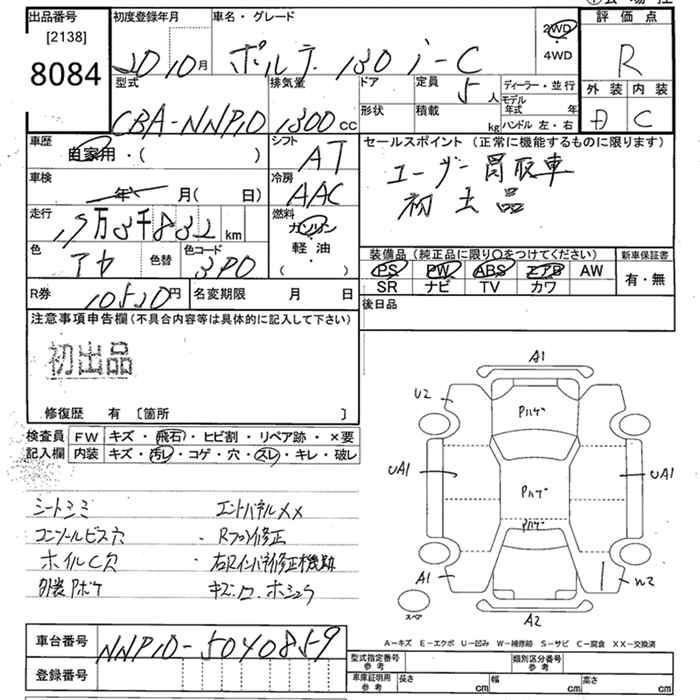 出品番号 初度登録年月 車名・グレード 2WD 評価点
[2138] 4WD
8084 20 10月 ポルテ 130 i-C R
型式 排気量 ドア 定員 ディーラー・並行 外装 内装
5人 モデル年式 年
CBA-NNP10 1300cc 形状 積載 kg ハンドル 左・右 C
車歴 シフト セールスポイント(正常に機能するものに限ります)
自家用・( ) AT ユーザー買取車
車検 年 月( 日) 冷房 AAC 初出品
走行 km 燃料 ガソリン
軽・油
( )
色 アカ 色替 色コード 3P0 装備品(純正品に限り○をつけてください) 新車保証書
PS PW ABS エアB AW 有・無
SR ナビ TV カワ
R券 10520円 名変期限 月 日 後日品
注意事項申告欄(不具合内容等は具体的に記入して下さい)
初出品
修復歴 有 〔箇所 〕
検査員 FW キズ・飛石・ヒビ割・リペア跡・×要
記入欄 内装 キズ・汚レ・コゲ・穴・スレ・キレ・破レ
シートシミ エンドパネル××
コンソールビス穴 ・Rフロア修正
ホイルC欠 ・右Rインパネ修正機跡
外装Pボケ
A1
U2 Pハゲ
UA1 Pハゲ UA1
Pハゲ
A1 W2
スペア A2
A-キズ E-エクボ U-凹み W-補修跡 S-サビ C-腐食 XX-交換済
車台番号 NNP10-5040859
登録番号
型式指定番号 参考 類別区分番号 参考
車庫証明用 参考 長さ cm 幅 cm 高さ cm